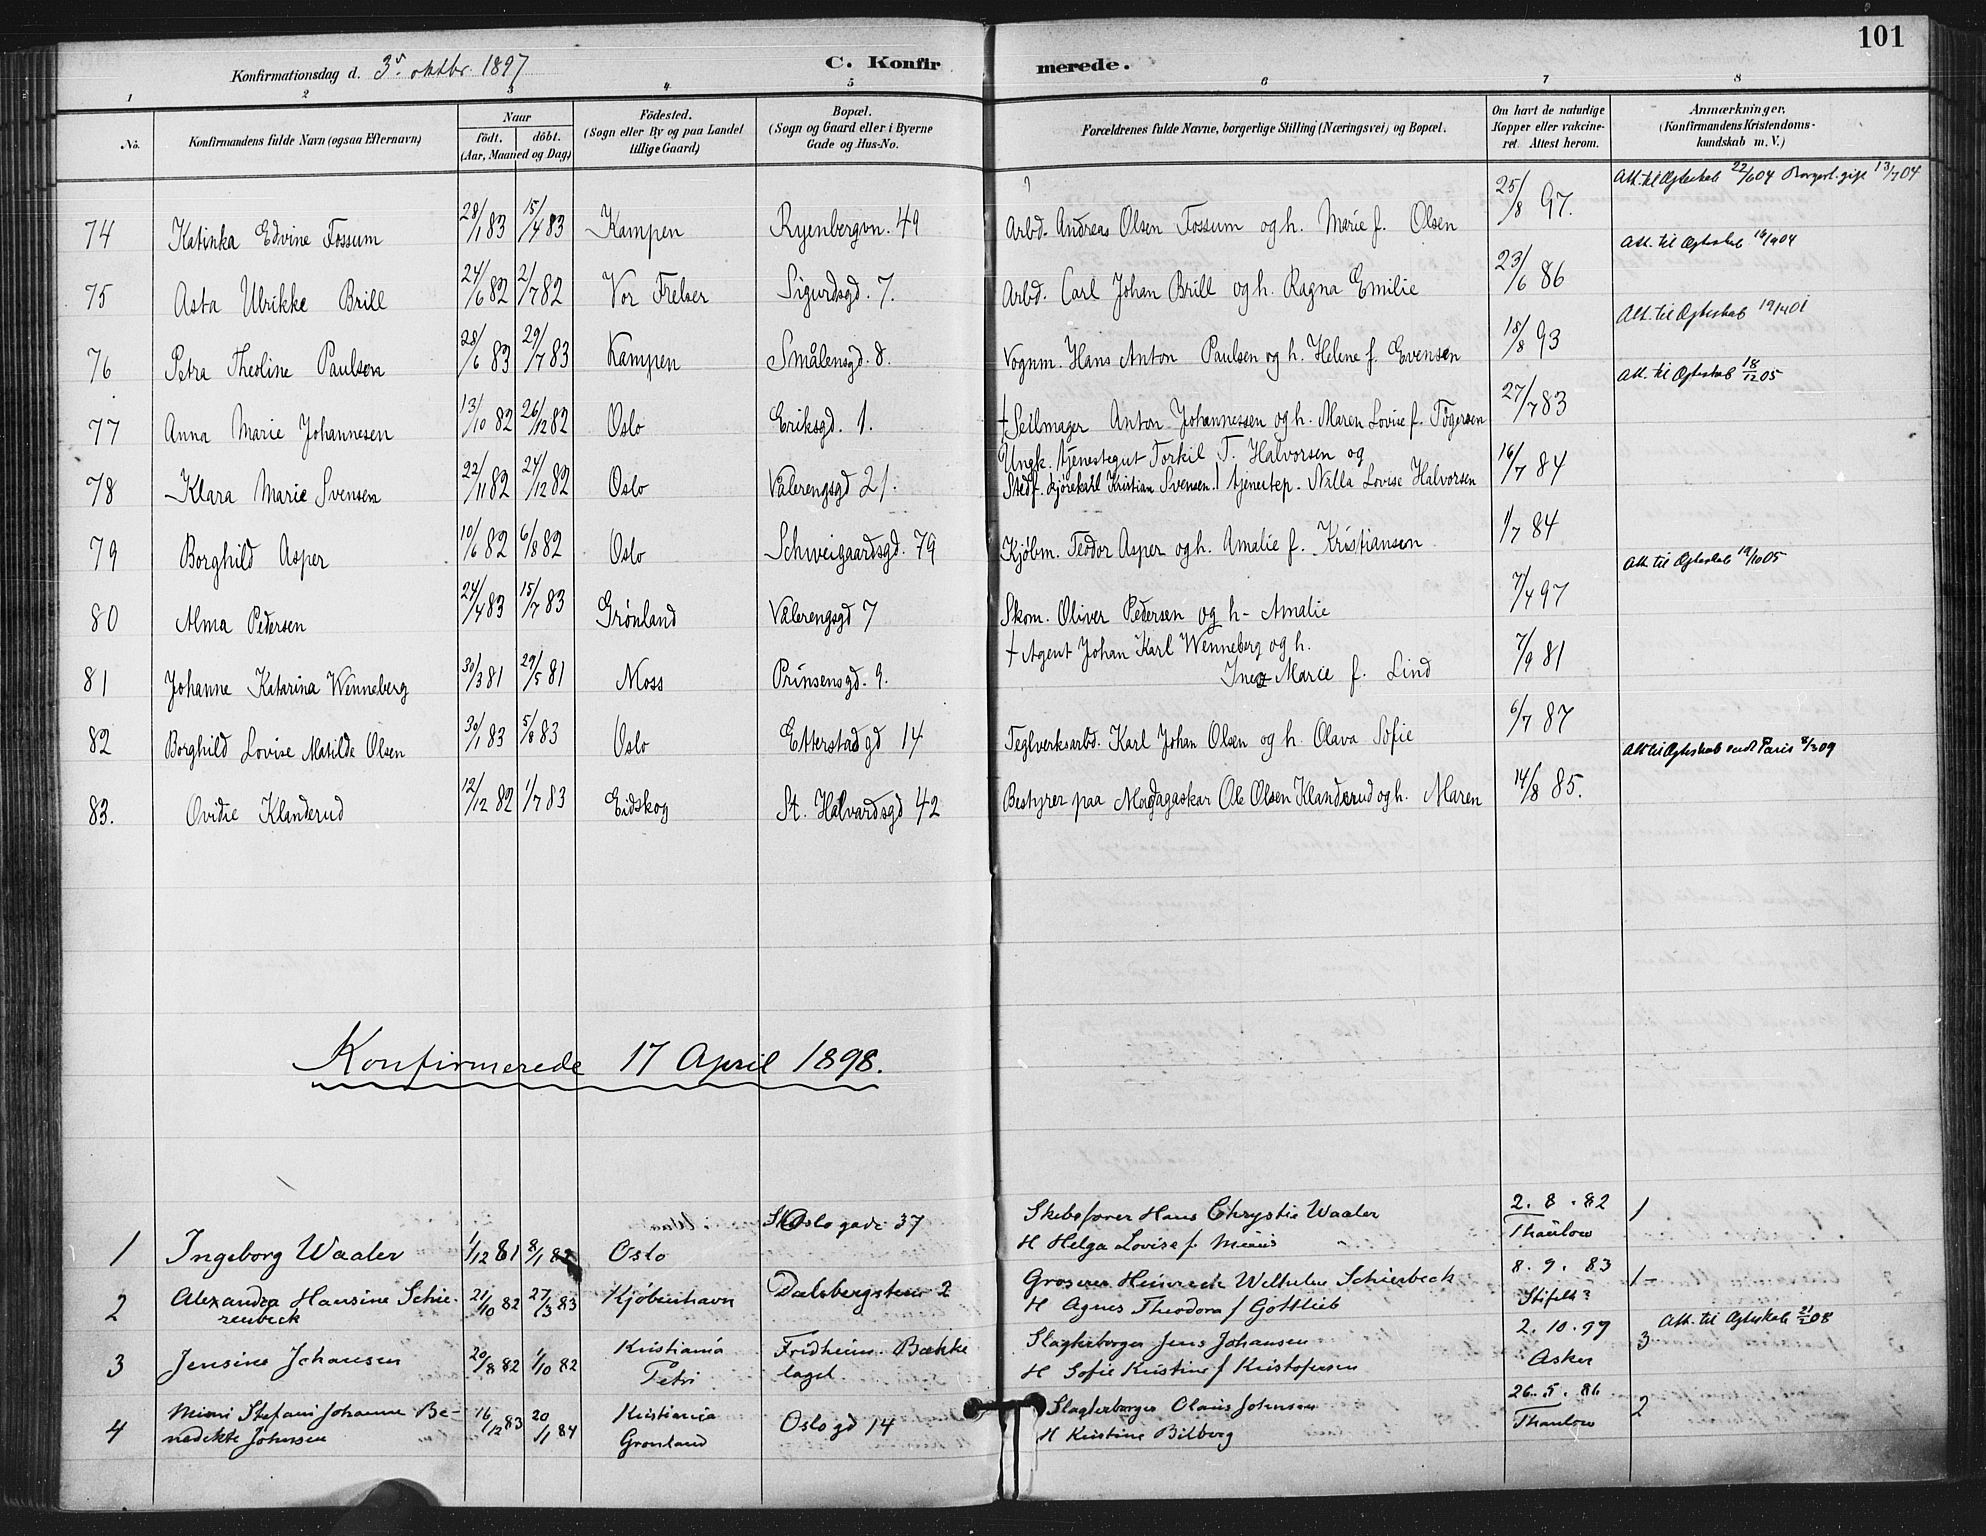 101
Konfirmationsdag d. 3' oktbr. 1897 C. Konfirmerede.
1 2 3 4 5 6 7 8
No. Konfirmandens fulde Navn (ogsaa Efternavn) Naar født. døbt. (Aar, Maaned og Dag) Fødested. (Sogn eller By og paa Landet tillige Gaard) Bopæl. (Sogn og Gaard eller i Byerne Gade og Hus-No. Forældrenes fulde Navne, borgerlige Stilling (Næringsvei) og Bopæl. Om havt de naturlige Kopper eller vakcineret. Attest herom. Anmærkninger, (Konfirmandens Kristendomskundskab m. V.)
74 Katinka Edvine Fossum 28/1 83 15/4 83 Kampen Ryenbergvn. 49 Arbd. Andreas Olsen Fossum og h. Marie f. Olsen 25/8 97. Att. til Ægteskab 22/6 04 Borgerl. gift 13/7 04
75 Asta Ulrikke Brill 24/6 82 2/7 82 Vor Frelser Sigurdsgd. 7. Arbd. Carl Johan Brill og h. Ragna Emilie 23/6 86 Att. til Ægteskab
76 Petra Theoline Paulsen 28/6 83 29/7 83 Kampen Smålensgd. 8. Vognm. Hans Anton Paulsen og h. Helene f. Evensen 18/8 93 Att. til Ægteskab
77 Anna Marie Johannesen 13/10 82 26/12 82 Oslo Eriksgd. 1. † Seilmager Anton Johannessen og h. Maren Lovise f. Tøgersen 27/7 83 Att. til Ægteskab 18/12 05
78 Klara Marie Svensen 22/11 82 24/12 82 Oslo Vålerengsgd 21. Ungk. tjenestegut Torkil T. Halvorsen og 16/7 84
Stedf. kjørekarl Kristian Svensen. tjenestep. Nilla Lovise Halvorsen
79 Borghild Asper 10/6 82 6/8 82 Oslo Schweigaardsgd. 79 Kjøbm. Teodor Asper og h. Amalie f. Kristiansen 1/7 84
80 Alma Pedersen 24/4 83 15/7 83 Grønland Vålerengsgd 7 Skom. Oliver Pedersen og h - Amalie 7/4 97 Att. til Ægteskab 19/10 05
81 Johanne Katarina Wenneberg 30/3 81 29/5 81 Moss Prinsensgd. 9. † Agent Johan Karl Wenneberg og h. 7/9 81
Inez Marie f. Lind
82 Borghild Lovise Matilde Olsen 30/1 83 5/8 83 Oslo Etterstadgd 14 Teglverksarbd. Karl Johan Olsen og h. Olava Sofie 6/7 87
83. Ovidie Klanderud 12/12 82 1/7 83 Eidskog St. Halvardsgd 42 Bestyrer paa Madagaskar Ole Olsen Klanderud og h. Maren 14/8 85. Att til Ægteskab Paris 8/3 09
Konfirmerede 17 April 1898.
1 Ingeborg Waaler 1/12 81 8/1 82 Oslo Oslo gade 37 Skibsfører Hans Chrystie Waaler 2. 8. 82 1
H Helga Lovise f. Thaulow
2 Alexandra Hansine Schie- 21/10 82 27/3 83 Kjøbenhavn Dalsbergstien 2 Grosserer Heinreich Wilhelm Schierbeck 8. 9. 83 1-
renbeck H Agnes Theodora f Gottlieb
3 Jensine Johansen 20/8 82 1/10 82 Kristiania Fridheim Bække Slagterborger Jens Johansen 2. 10. 97 3 Att. til Ægteskab 21/2 08
Petri laget H Sofie Kristine f Kristofersen Asker
4 Mimi Stefani Johanne Be- 16/12 83 20/1 84 Kristiania Oslo gd 14 Slagterborger Olaus Johnsen 26. 5. 86 2
nedikte Johnsen Grønland H Kristine Bilberg Thaulow